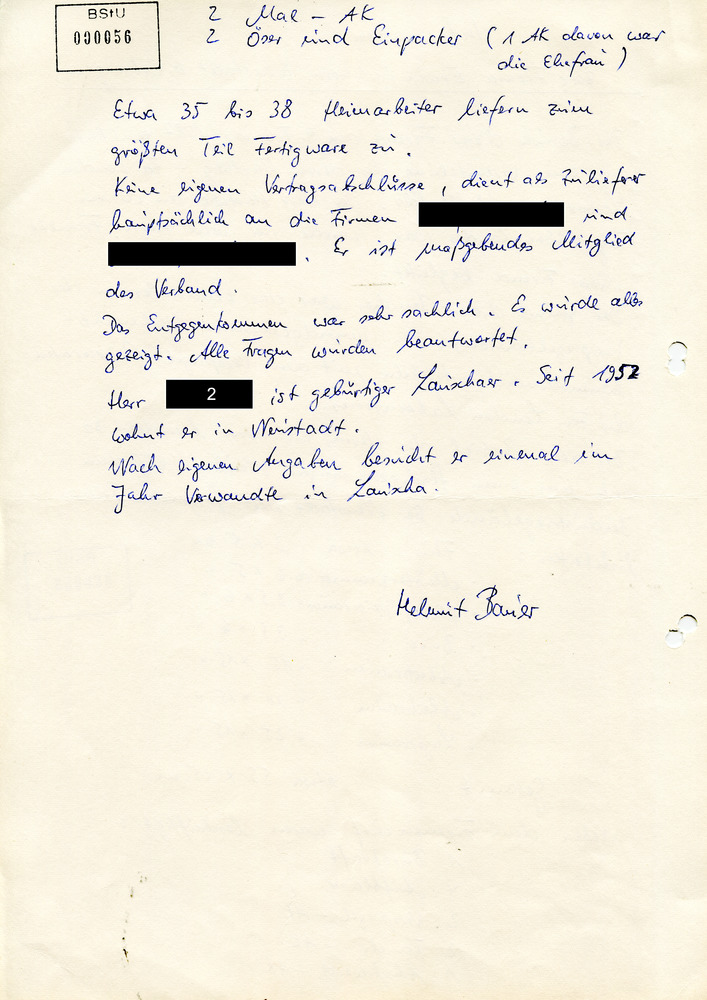 BStU
000056
2 Mal - AK
2 Öser und Einpacker (1 AK davon war
die Ehefrau)
Etwa 35 bis 38 Heimarbeiter liefern zum
größten Teil Fertigware zu.
Keine eigenen Vertragsabschlüsse, dient als Zulieferer
hauptsächlich an die Firmen und
. Er ist maßgebendes Mitglied
des Verband.
Das Entgegenkommen war sehr sachlich. Es wurde alles
gezeigt. Alle Fragen wurden beantwortet.
Herr 2 ist gebürtiger Lauschaer. Seit 1952
wohnt er in Neustadt.
Nach eigenen Angaben besucht er einmal im
Jahr Verwandte in Lauscha.
Helmut Bauer